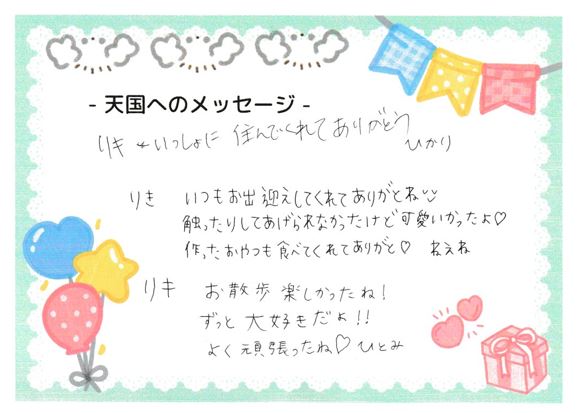 - 天国へのメッセージ -
リキ いっしょに 住んでくれてありがとう
ひかり
りき いつもお出迎えしてくれてありがとね
触ったりしてあげられなかったけど可愛いかったよ♡
作ったおやつも食べてくれてありがと♡ ねぇね
リキ お散歩楽しかったね!
ずっと大好きだよ!!
よく頑張ったね♡ ひとみ